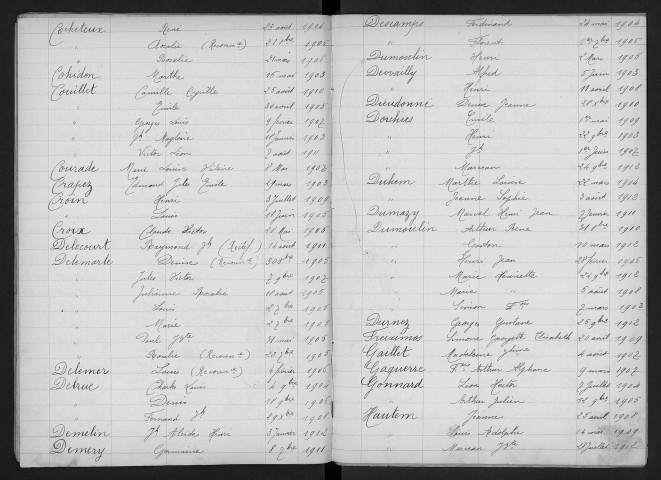 Cocheteux René 23 août 1904
" Amélie (Reconn.ce) 21 8bre 1905
" Rosalie 21 mars 1905
Cohidon Marthe 15 mai 1903
Couillet Camille Cyrille 25 août 1910
" Emile 30 août 1905
" Georges Louis 9 février 1907
" Jh Magloire 18 février 1903
" Victor Léon 7 août 1911
Courade Marie Louise 8 Mai 1907
Crapez Edmond Jules Emile 29 mars 1903
Croin Henri 3 juillet 1909
" Louis 18 juin 1905
Croix Claude Victor 21 Mai 1906
Delecourt Raymond Jh 16 août 1911
Delemarle Denise (Reconn.ce) 30 8bre 1905
" Jules Victor 7 9bre 1907
" Julienne Rosalie 18 août 1905
" Louis 27 bre 1905
" Marie 27 bre 1905
" Paul 31 mai 1905
" Rosalie (Reconn.ce) 20 7bre 1905
Delemer Louis (Reconn.ce) 4 février 1906
Delruc Charles 4 9bre 1904
" Denis 18 9bre 1906
" Fernand Jh 29 Xbre 1908
Demelin Jh Henri 3 janvier 1912
Demery Germaine 8 7bre 1911
Descamps Ferdinand 20 mai 1904
" Florent 1er 7bre 1905
Dumoulin Henri 2 Mars 1905
Devrailly Alfred 5 juin 1903
" Henri 18 août 1908
Dieudonné Denise Jeanne 28 Xbre 1910
Dorchies Emile 1er mai 1909
" Henri 22 9bre 1903
" Jh 1er juin 1907
" Marceau 24 9bre 1912
Duhem Marthe Louise 22 mars 1904
" Jeanne Sophie 3 août 1912
Dumazy Marcel Henri Jean 7 février 1911
Dumoulin Arthur René 31 8bre 1910
" Gaston 10 mars 1912
" Henri Jean 28 février 1905
" Marie Henriette 24 9bre 1912
" Marie 5 août 1908
" Simon 7 mars 1903
Durnez Georges Gustave 25 9bre 1912
Freumos Simone Georgette Elisabeth 20 août 1909
Gaillet Madeleine 4 août 1907
Gaquerre Fois Arthur Alphonse 9 mars 1907
Gonnard Léon Hector 7 juillet 1904
" Arthur Julien 22 9bre 1905
Hautem Jeanne 25 avril 1908
" Louis Adolphe 14 mai 1909
" Marceau 28 juillet 1912